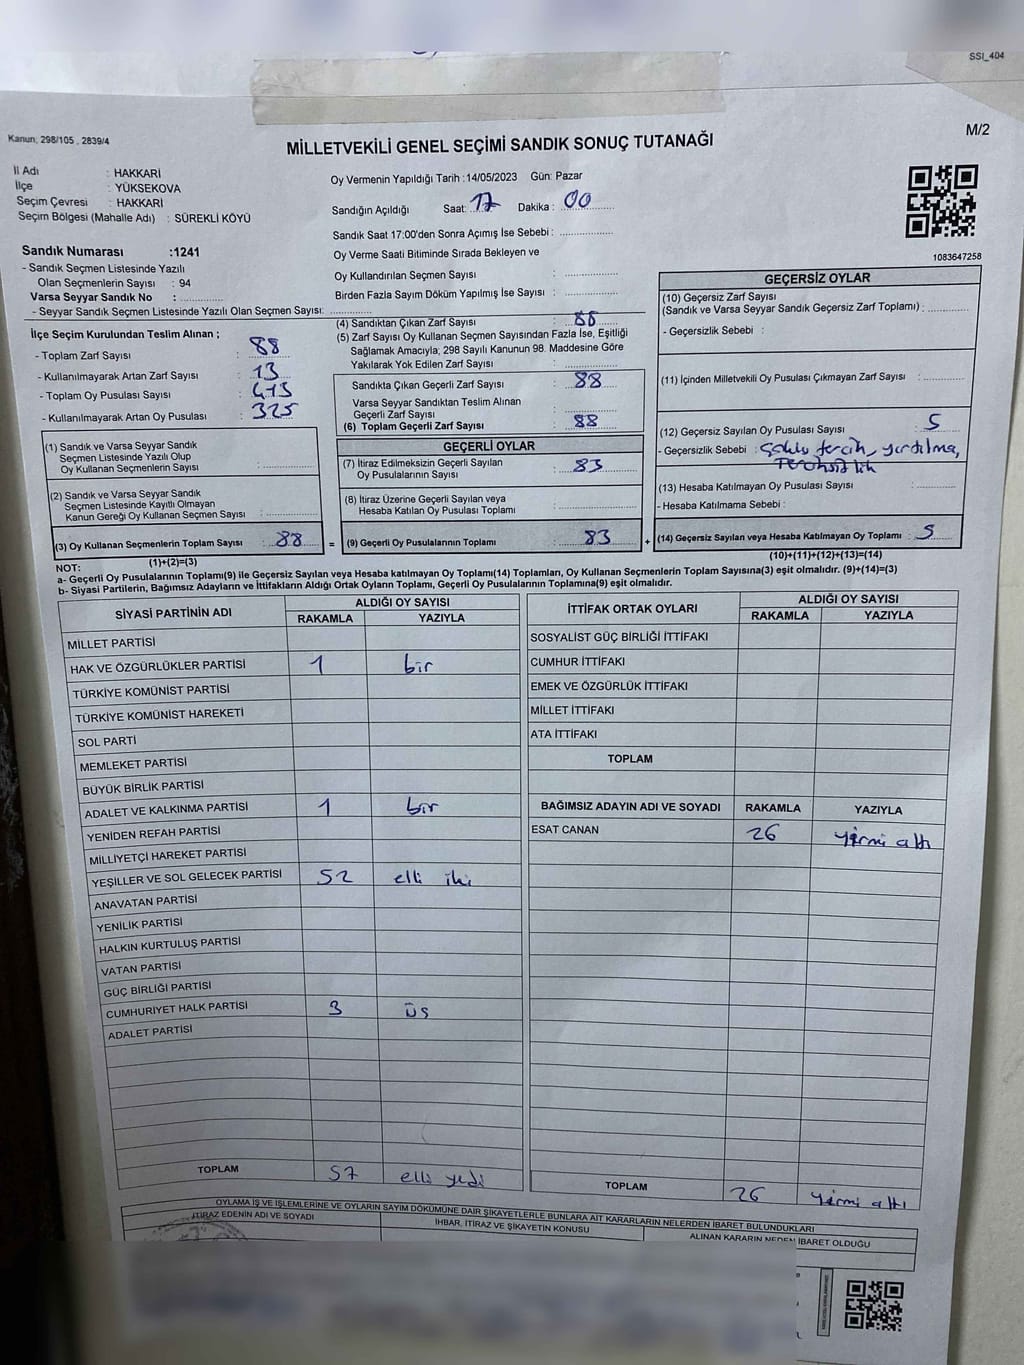 SSI_404
Kanun; 298/105 , 2839/4
M/2
MİLLETVEKİLİ GENEL SEÇİMİ SANDIK SONUÇ TUTANAĞI
İl Adı : HAKKARİ
İlçe : YÜKSEKOVA
Seçim Çevresi : HAKKARİ
Seçim Bölgesi (Mahalle Adı) : SÜREKLİ KÖYÜ
Oy Vermenin Yapıldığı Tarih :14/05/2023 Gün: Pazar
Sandığın Açıldığı Saat: 17 Dakika : 00
Sandık Saat 17:00'den Sonra Açımış İse Sebebi :
Oy Verme Saati Bitiminde Sırada Bekleyen ve
Oy Kullandırılan Seçmen Sayısı :
Birden Fazla Sayım Döküm Yapılmış İse Sayısı :
1083647258
Sandık Numarası :1241
- Sandık Seçmen Listesinde Yazılı
Olan Seçmenlerin Sayısı : 94
Varsa Seyyar Sandık No :
- Seyyar Sandık Seçmen Listesinde Yazılı Olan Seçmen Sayısı:
İlçe Seçim Kurulundan Teslim Alınan ;
- Toplam Zarf Sayısı : 88
- Kullanılmayarak Artan Zarf Sayısı : 13
- Toplam Oy Pusulası Sayısı : 413
- Kullanılmayarak Artan Oy Pusulası : 325
(1) Sandık ve Varsa Seyyar Sandık
Seçmen Listesinde Yazılı Olup
Oy Kullanan Seçmenlerin Sayısı :
(2) Sandık ve Varsa Seyyar Sandık
Seçmen Listesinde Kayıtlı Olmayan
Kanun Gereği Oy Kullanan Seçmen Sayısı :
(3) Oy Kullanan Seçmenlerin Toplam Sayısı : 88 =
(1)+(2)=(3)
(4) Sandıktan Çıkan Zarf Sayısı : 88
(5) Zarf Sayısı Oy Kullanan Seçmen Sayısından Fazla İse, Eşitliği
Sağlamak Amacıyla, 298 Sayılı Kanunun 98. Maddesine Göre
Yakılarak Yok Edilen Zarf Sayısı :
Sandıkta Çıkan Geçerli Zarf Sayısı : 88
Varsa Seyyar Sandıktan Teslim Alınan
Geçerli Zarf Sayısı :
(6) Toplam Geçerli Zarf Sayısı : 88
GEÇERLİ OYLAR
(7) İtiraz Edilmeksizin Geçerli Sayılan
Oy Pusulalarının Sayısı : 83
(8) İtiraz Üzerine Geçerli Sayılan veya
Hesaba Katılan Oy Pusulası Toplamı :
(9) Geçerli Oy Pusulalarının Toplamı : 83 +
GEÇERSİZ OYLAR
(10) Geçersiz Zarf Sayısı
(Sandık ve Varsa Seyyar Sandık Geçersiz Zarf Toplamı) :
- Geçersizlik Sebebi :
(11) İçinden Milletvekili Oy Pusulası Çıkmayan Zarf Sayısı :
(12) Geçersiz Sayılan Oy Pusulası Sayısı : 5
- Geçersizlik Sebebi : tercih, yırtılma,
(13) Hesaba Katılmayan Oy Pusulası Sayısı :
- Hesaba Katılmama Sebebi :
(14) Geçersiz Sayılan veya Hesaba Katılmayan Oy Toplamı : 5
(10)+(11)+(12)+(13)=(14)
NOT:
a- Geçerli Oy Pusulalarının Toplamı(9) ile Geçersiz Sayılan veya Hesaba katılmayan Oy Toplamı(14) Toplamları, Oy Kullanan Seçmenlerin Toplam Sayısına(3) eşit olmalıdır. (9)+(14)=(3)
b- Siyasi Partilerin, Bağımsız Adayların ve İttifakların Aldığı Ortak Oyların Toplamı, Geçerli Oy Pusulalarının Toplamına(9) eşit olmalıdır.
SİYASİ PARTİNİN ADI ALDIĞI OY SAYISI
RAKAMLA YAZIYLA
MİLLET PARTİSİ
HAK VE ÖZGÜRLÜKLER PARTİSİ 1 bir
TÜRKİYE KOMÜNİST PARTİSİ
TÜRKİYE KOMÜNİST HAREKETİ
SOL PARTİ
MEMLEKET PARTİSİ
BÜYÜK BİRLİK PARTİSİ
ADALET VE KALKINMA PARTİSİ 1 bir
YENİDEN REFAH PARTİSİ
MİLLİYETÇİ HAREKET PARTİSİ
YEŞİLLER VE SOL GELECEK PARTİSİ 52 elli iki
ANAVATAN PARTİSİ
YENİLİK PARTİSİ
HALKIN KURTULUŞ PARTİSİ
VATAN PARTİSİ
GÜÇ BİRLİĞİ PARTİSİ
CUMHURİYET HALK PARTİSİ 3 üş
ADALET PARTİSİ
TOPLAM 57 elli yedi
İTTİFAK ORTAK OYLARI ALDIĞI OY SAYISI
RAKAMLA YAZIYLA
SOSYALİST GÜÇ BİRLİĞİ İTTİFAKI
CUMHUR İTTİFAKI
EMEK VE ÖZGÜRLÜK İTTİFAKI
MİLLET İTTİFAKI
ATA İTTİFAKI
TOPLAM
BAĞIMSIZ ADAYIN ADI VE SOYADI RAKAMLA YAZIYLA
ESAT CANAN 26 yirmi altı
TOPLAM 26 yirmi altı
OYLAMA İŞ VE İŞLEMLERİNE VE OYLARIN SAYIM DÖKÜMÜNE DAİR ŞİKAYETLERLE BUNLARA AİT KARARLARIN NELERDEN İBARET BULUNDUKLARI
İTİRAZ EDENİN ADI VE SOYADI İHBAR, İTİRAZ VE ŞİKAYETİN KONUSU ALINAN KARARIN NEDEN İBARET OLDUĞU